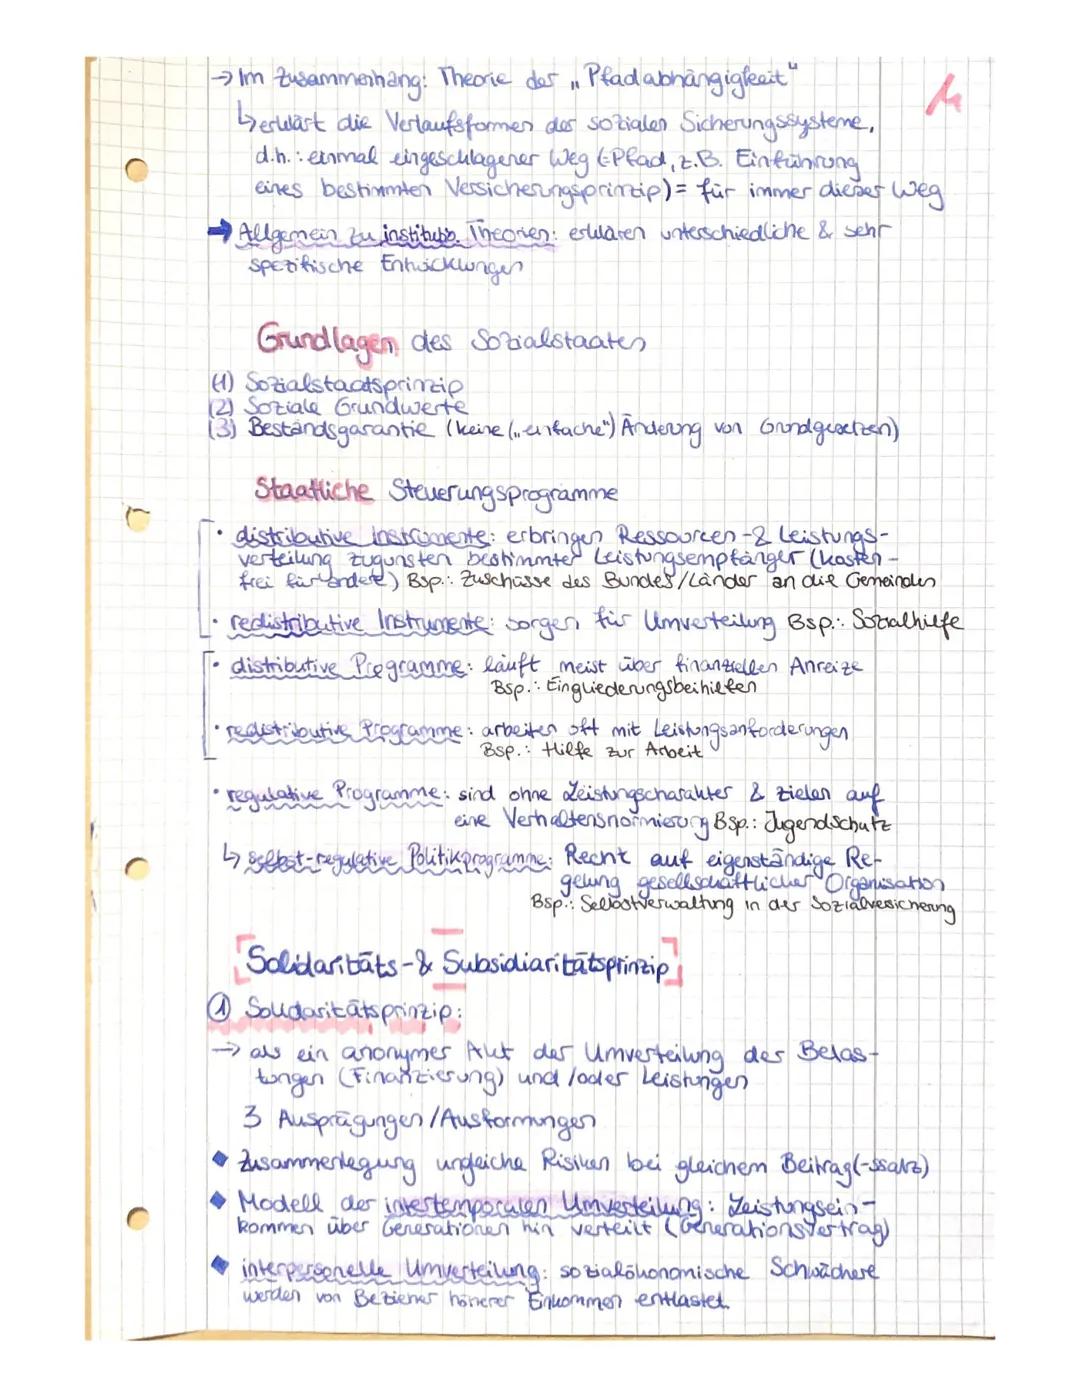 → Im Zusammenhang: Theorie der „Pfadabhängigkeit"
↳ erklärt die Verlaufsformen der sozialen Sicherungssysteme,
d.h.: einmal eingeschlagener Weg (=Pfad, z.B. Einführung
eines bestimmten Versicherungsprinzip) = für immer dieser Weg
→ Allgemein zu institub. Theorien: erklären unterschiedliche & sehr
spezifische Entwicklungen
Grundlagen des Sozialstaates
(1) Sozialstaatsprinzip
(2) Soziale Grundwerte
(3) Bestandsgarantie (keine („einfache") Änderung von Grundgesetzen)
Staatliche Steuerungsprogramme
• distributive Instrumente: erbringen Ressourcen- & Leistungs-
verteilung zugunsten bestimmter Leistungsempfänger (kosten-
frei für andere) Bsp.: Zuschüsse des Bundes/Länder an die Gemeinden
• redistributive Instrumente: sorgen für Umverteilung Bsp.: Sozialhilfe
• distributive Programme: läuft meist über finanziellen Anreize
Bsp.: Eingliederungsbeihilfen
• redistributive Programme: arbeiten oft mit Leistungsanforderungen
Bsp.: Hilfe zur Arbeit
• regulative Programme: sind ohne Leistungscharakter & zielen auf
eine Verhaltensnormierung Bsp.: Jugendschutz
↳ selbst-regulative Politikprogramme: Recht auf eigenständige Re-
gelung gesellschaftlicher Organisation
Bsp.: Selbstverwaltung in der Sozialversicherung
[Solidaritäts- & Subsidiaritätsprinzip]
① Solidaritätsprinzip:
→ als ein anonymer Akt der Umverteilung der Belas-
tungen (Finanzierung) und/oder Leistungen
3 Ausprägungen/Ausformungen
◆ Zusammenlegung ungleiche Risiken bei gleichem Beitrag(-ssatz)
◆ Modell der intertemporalen Umverteilung: Leistungsein-
kommen über Generationen hin verteilt (Generationsvertrag)
◆ interpersonelle Umverteilung: sozialökonomische Schwächere
werden von Bezieher höherer Einkommen entlastet.